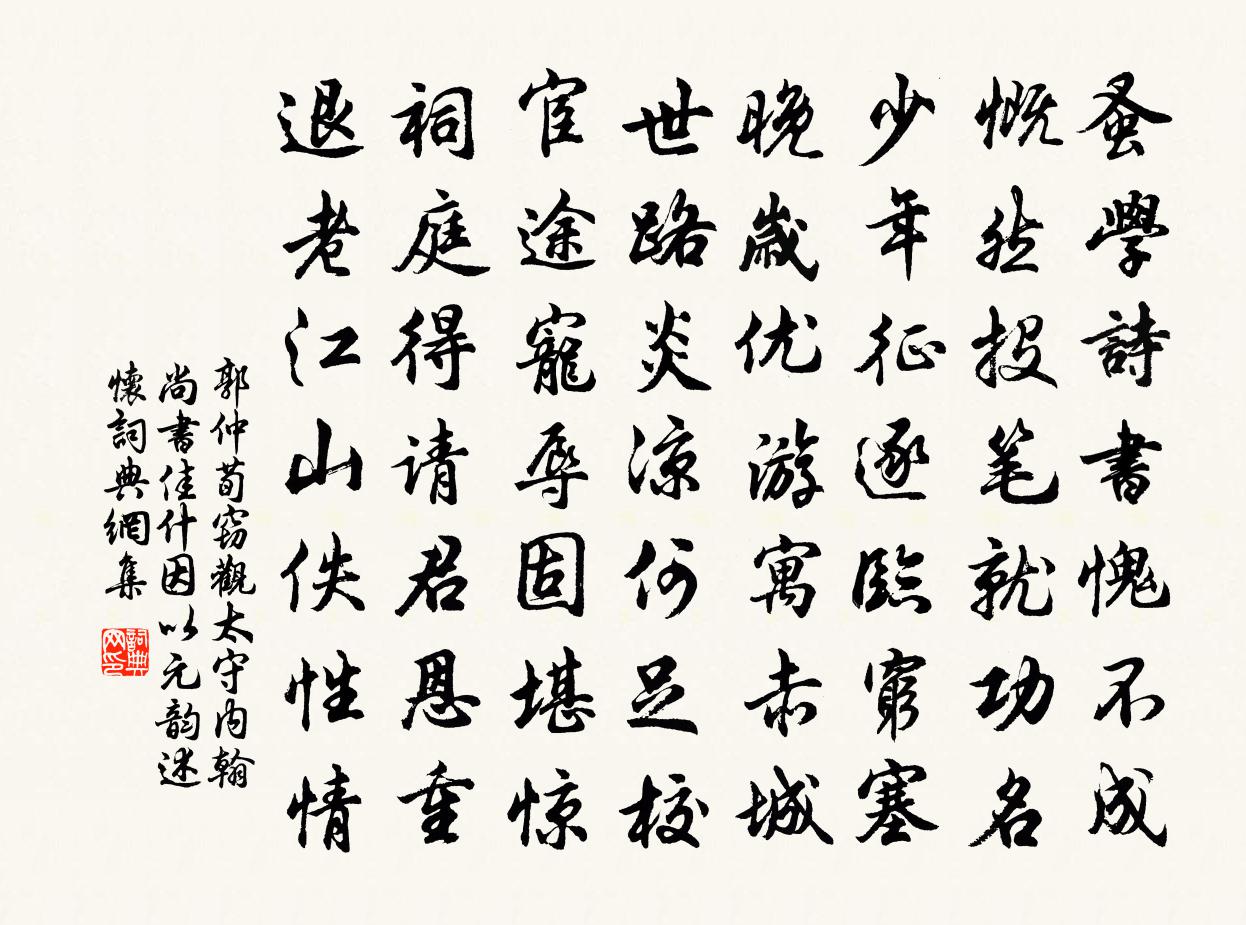 蚤學詩書愧不成
慨然投笔就功名
少年征逐臨窮塞
晚歲优游寓赤城
世路炎凉何足校
宦途寵辱固堪惊
祠庭得请君恩重
退老江山佚性情
郭仲荀窃觀太守内翰
尚書佳什因以元韵述
懷詞典網集
詞典网印